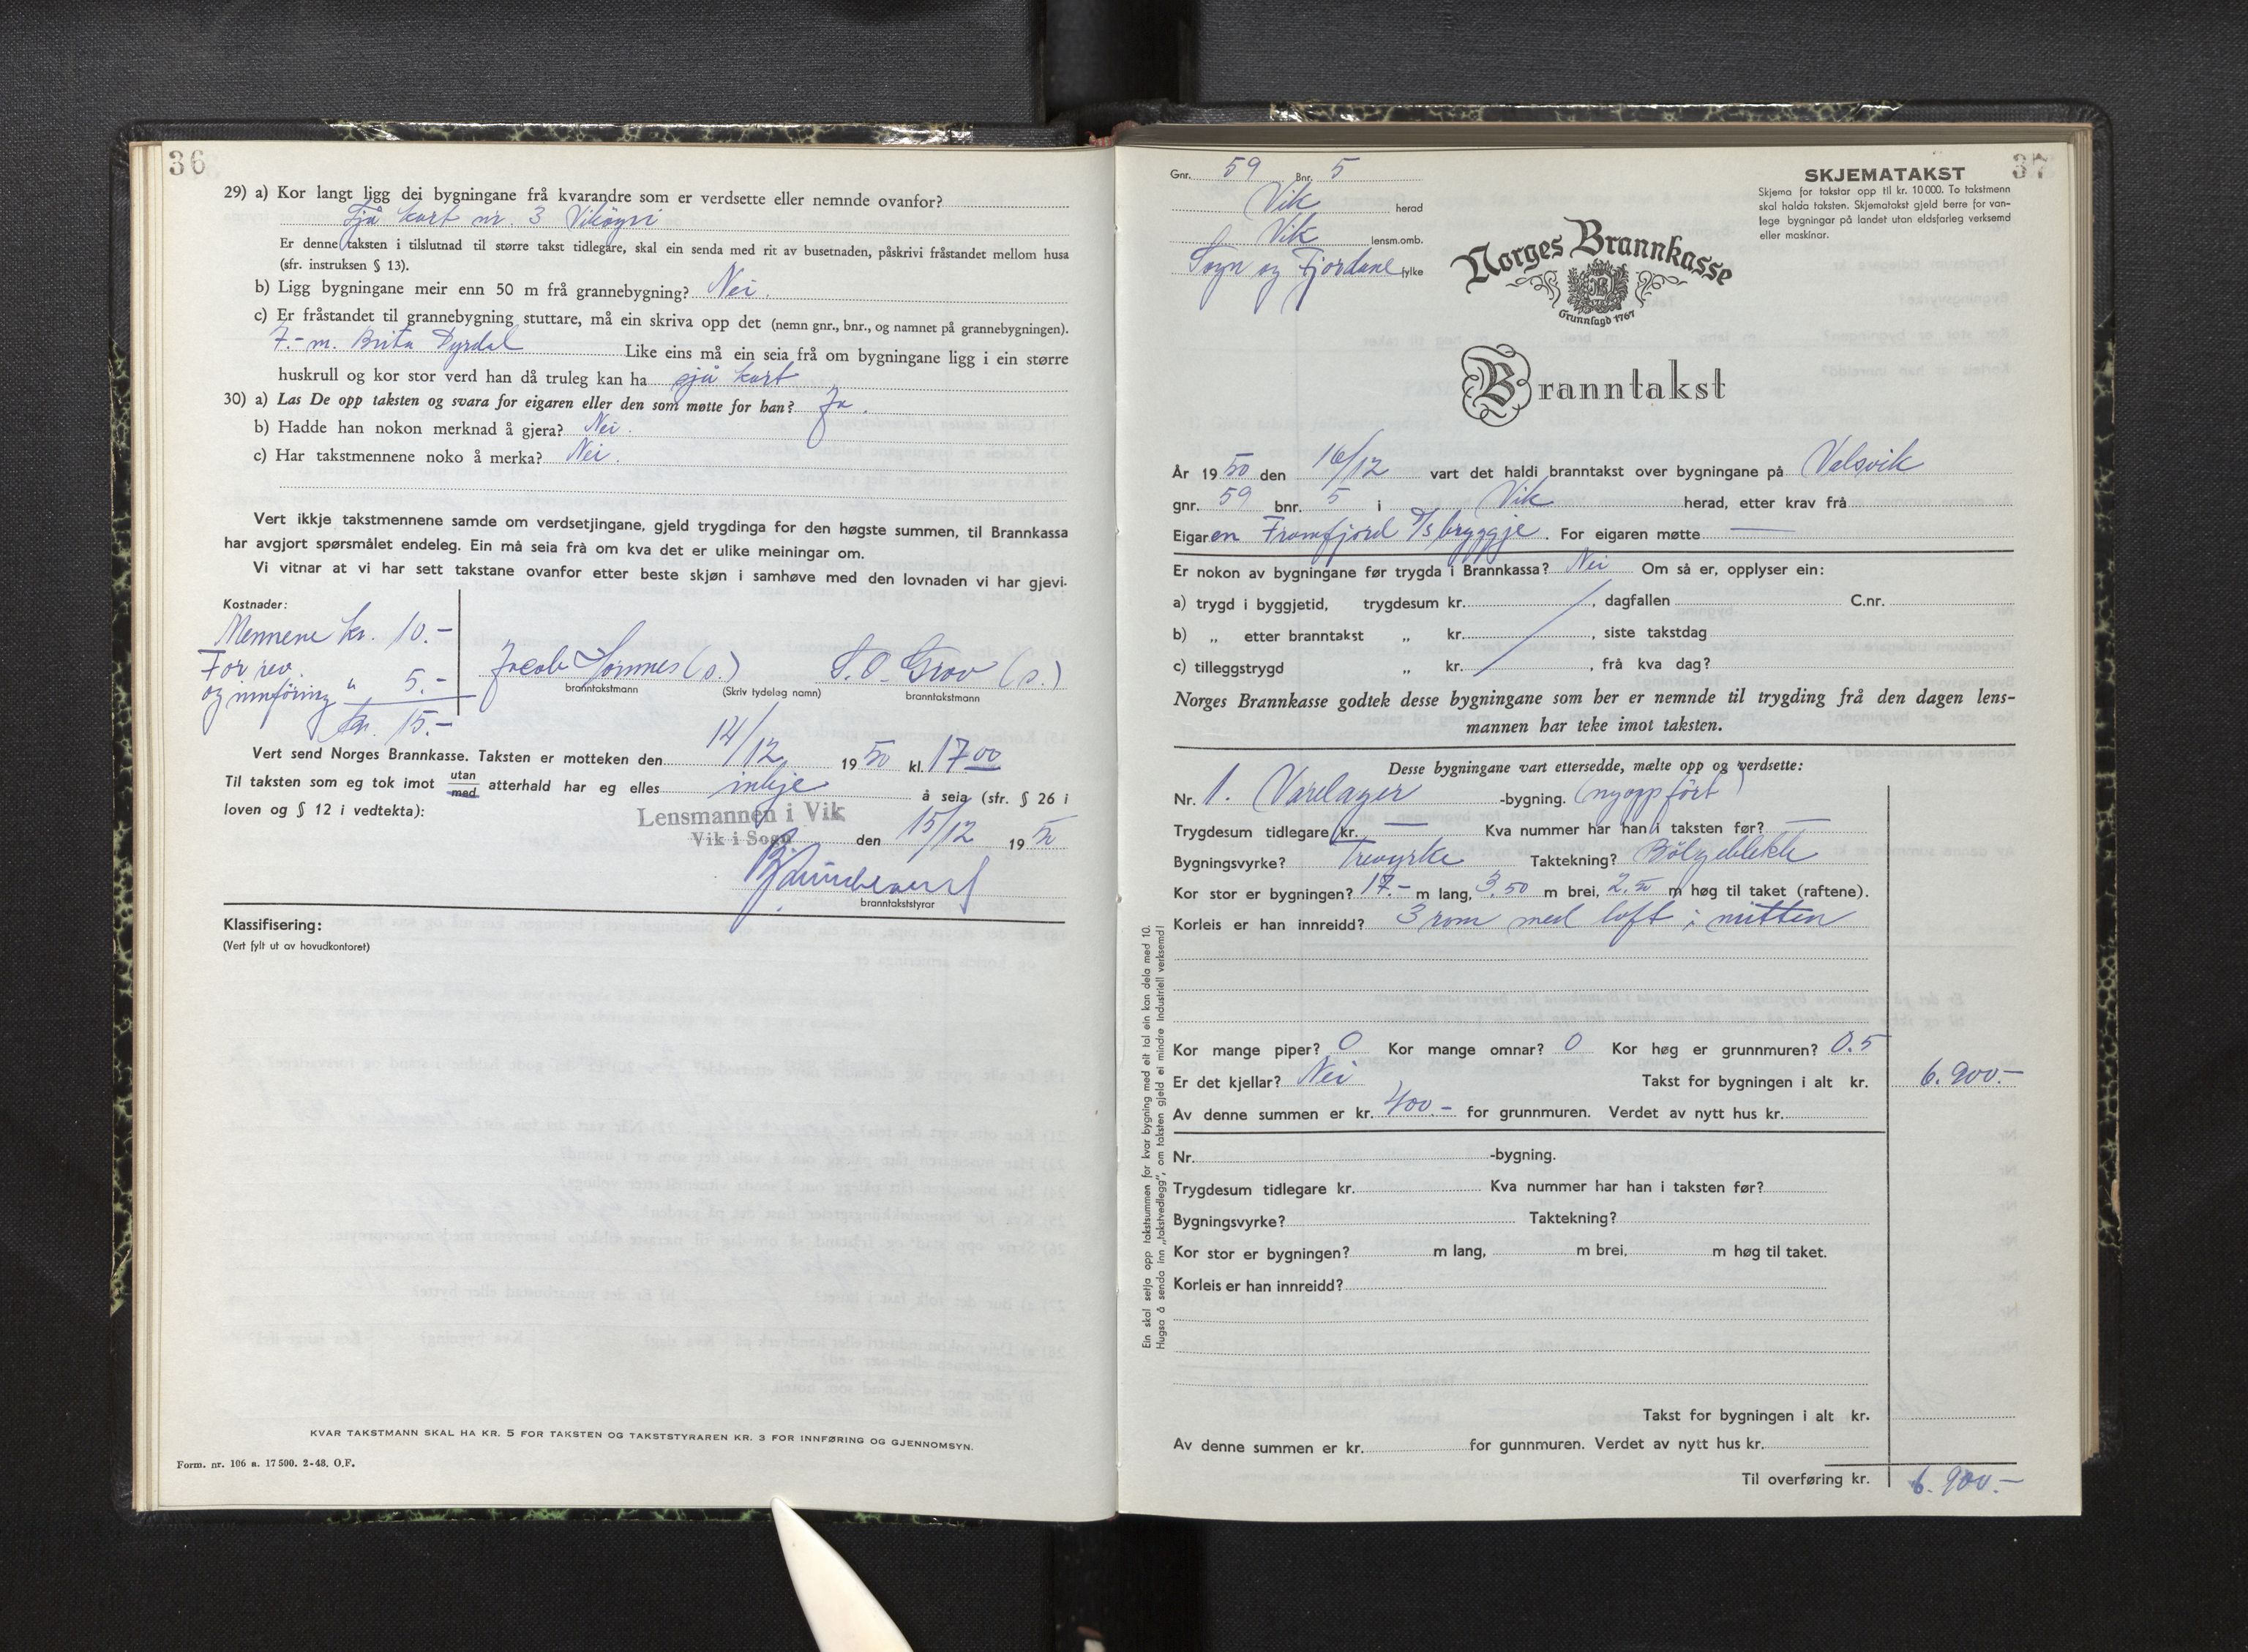 36
29) a) Kor langt ligg dei bygningane frå kvarandre som er verdsette eller nemnde ovanfor?
Sjå kart nr. 3 Vikøyri
Er denne taksten i tilslutnad til større takst tidlegare, skal ein senda med rit av busetnaden, påskrivi fråstandet mellom husa
(sfr. instruksen § 13).
b) Ligg bygningane meir enn 50 m frå grannebygning? Nei.
c) Er fråstandet til grannebygning stuttare, må ein skriva opp det (nemn gnr., bnr., og namnet på grannebygningen).
7.- m. Brita Dyrdal Like eins må ein seia frå om bygningane ligg i ein større
huskrull og kor stor verd han då truleg kan ha sjå kart
30) a) Las De opp taksten og svara for eigaren eller den som møtte for han? Ja.
b) Hadde han nokon merknad å gjera? Nei.
c) Har takstmennene noko å merka? Nei.
Vert ikkje takstmennene samde om verdsetjingane, gjeld trygdinga for den høgste summen, til Brannkassa
har avgjort spørsmålet endeleg. Ein må seia frå om kva det er ulike meiningar om.
Vi vitnar at vi har sett takstane ovanfor etter beste skjøn i samhøve med den lovnaden vi har gjevi.
Kostnader:
Mennene kr. 10.-
For rev.
og innföring " 5.-
kr. 15.-
Jacob Hornnes (s.) S. O. Grov (s.)
branntakstmann (Skriv tydeleg namn) branntakstmann
Vert send Norges Brannkasse. Taksten er motteken den 14/12 1950 kl. 17 00
Til taksten som eg tok imot utan/med atterhald har eg elles inkje å seia (sfr. § 26 i
loven og § 12 i vedtekta):
Lensmannen i Vik
Vik i Sogn den 15/12 1950
branntakststyrar
Klassifisering:
(Vert fylt ut av hovudkontoret)
KVAR TAKSTMANN SKAL HA KR. 5 FOR TAKSTEN OG TAKSTSTYRAREN KR. 3 FOR INNFØRING OG GJENNOMSYN.
Form. nr. 106 a. 17 500. 2-48. O.F.
37
Gnr. 59 Bnr. 5
Vik herad
Vik lensm.omb.
Sogn og Fjordane fylke
SKJEMATAKST
Skjema for takstar opp til kr. 10 000. To takstmenn
skal halda taksten. Skjematakst gjeld berre for van-
lege bygningar på landet utan eldsfarleg verksemd
eller maskinar.
Norges Brannkasse
Grunnlagd 1767
Branntakst
År 1950 den 16/12 vart det haldi branntakst over bygningane på Valsvik
gnr. 59 bnr. 5 i Vik herad, etter krav frå
Eigaren Framfjord %s bryggje. For eigaren møtte —
Er nokon av bygningane før trygda i Brannkassa? Nei Om så er, opplyser ein:
a) trygd i byggjetid, trygdesum kr. , dagfallen C.nr.
b) „ etter branntakst „ kr. , siste takstdag
c) tilleggstrygd „ kr. , frå kva dag?
Norges Brannkasse godtek desse bygningane som her er nemnde til trygding frå den dagen lens-
mannen har teke imot taksten.
Desse bygningane vart ettersedde, mælte opp og verdsette:
Nr. 1. Varelager -bygning. (nyoppfört)
Trygdesum tidlegare kr. — Kva nummer har han i taksten før? —
Bygningsvyrke? Trevyrke Taktekning? Bölgeblekk
Kor stor er bygningen? 17.- m lang, 3.50 m brei, 2.50 m høg til taket (raftene).
Korleis er han innreidd? 3 rom med loft i mitten
Kor mange piper? 0 Kor mange omnar? 0 Kor høg er grunnmuren? 0.5
Er det kjellar? Nei Takst for bygningen i alt kr. 6.900.-
Av denne summen er kr. 400.- for grunnmuren. Verdet av nytt hus kr.
Nr. -bygning.
Trygdesum tidlegare kr. Kva nummer har han i taksten før?
Bygningsvyrke? Taktekning?
Kor stor er bygningen? m lang, m brei, m høg til taket.
Korleis er han innreidd?
Takst for bygningen i alt kr.
Av denne summen er kr. for gunnmuren. Verdet av nytt hus kr.
Til overføring kr. 6.900.-
Ein skal setja opp takstsummen for kvar bygning med eit tal ein kan dela med 10.
Hugsa å senda inn „takstvedlegg”, om taksten gjeld ei mindre industriell verksemd!